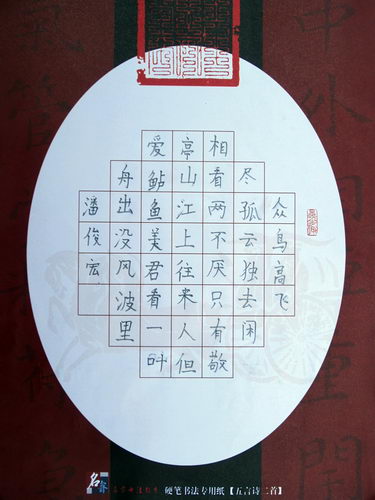 众鸟高飞
尽孤云独去闲
相看两不厌只有敬
亭山江上往来人但
爱鲈鱼美君看一叶
舟出没风波里
潘俊宏
硬笔书法专用纸【五言诗二首】